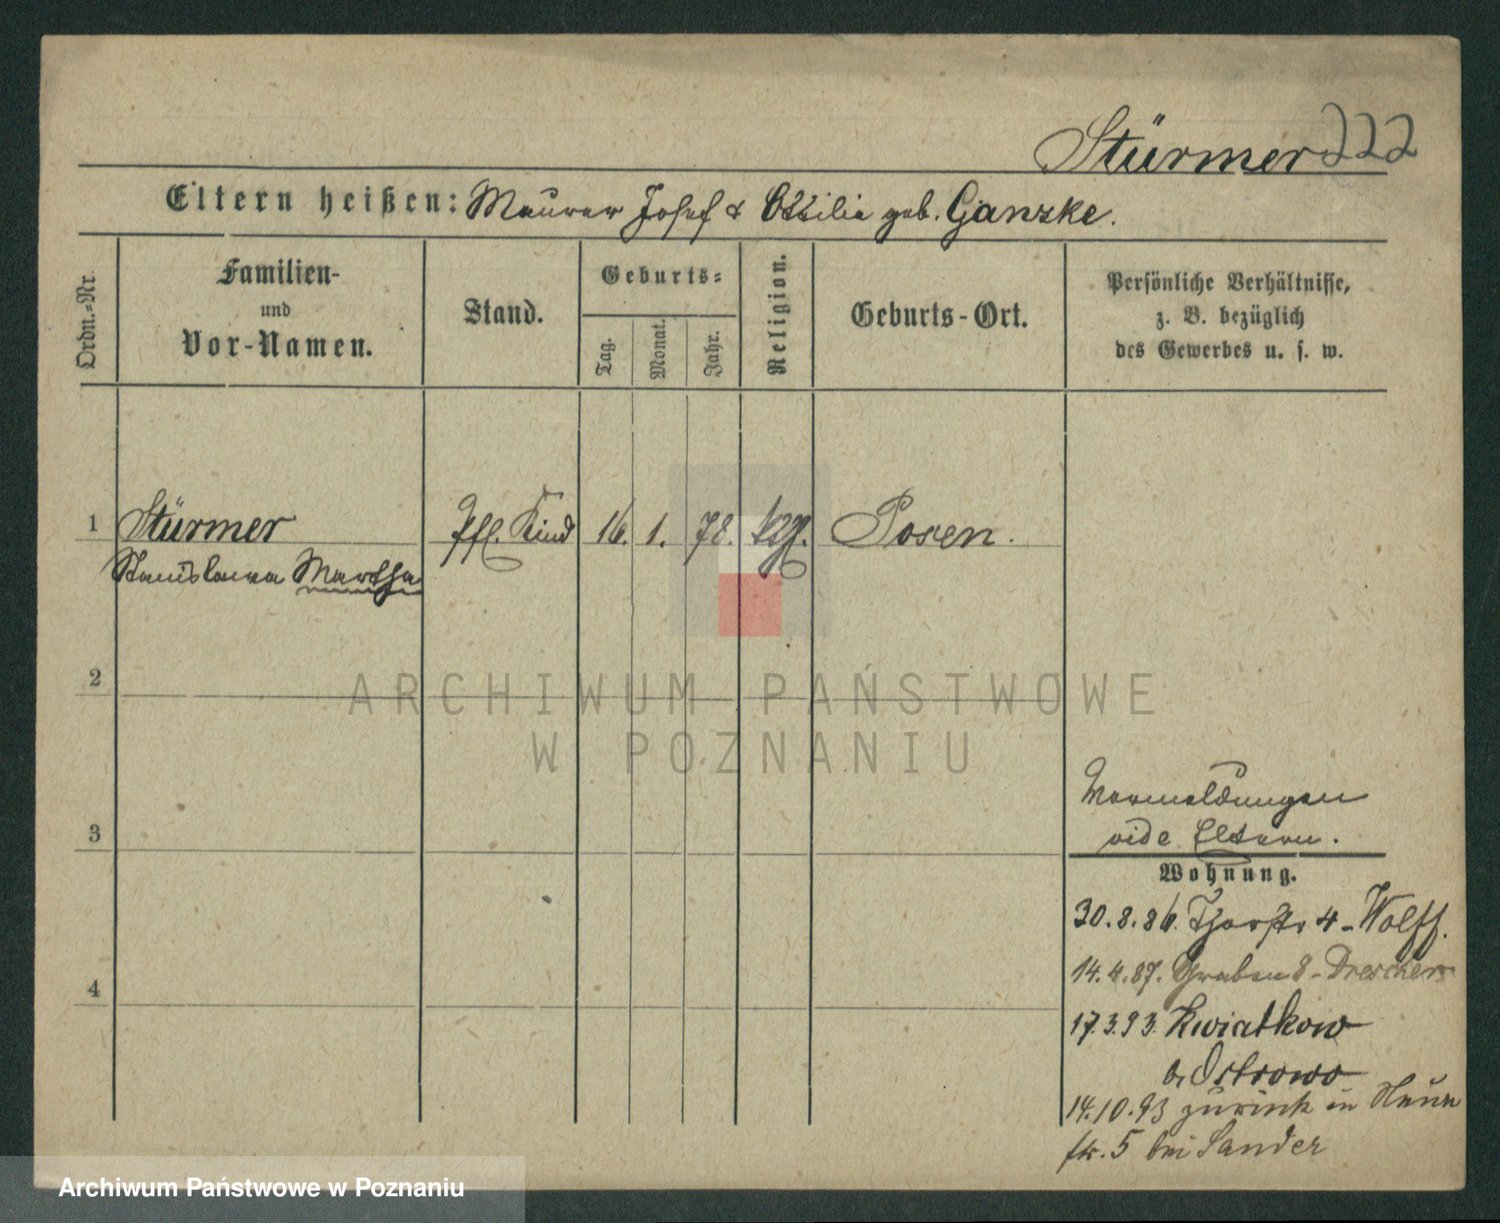 Stürmer 222
Eltern heißen: Maurer Josef & Ottilie geb. Ganzke.
Ordn.-Nr.
Familien-
und
Vor-Namen.
Stand.
Geburts-
Tag.
Monat.
Jahr.
Religion.
Geburts-Ort.
Persönliche Verhältnisse,
z. B. bezüglich
des Gewerbes u. s. w.
1 Stürmer Pfl. Kind 16. 1. 78. kth. Posen.
Stanislawa Martha
2
ARCHIWUM PAŃSTWOWE
W POZNANIU
Vermeldungen
3 vide Eltern.
Wohnung.
30.8.86. Thorstr 4 - Wolff.
14.4.87. Graben 8 - Drescher
4
17.3.93. Kwiatkow
Kr Ostrowo
14.10.93 zurück in
str. 5 bei Sander
Archiwum Państwowe w Poznaniu